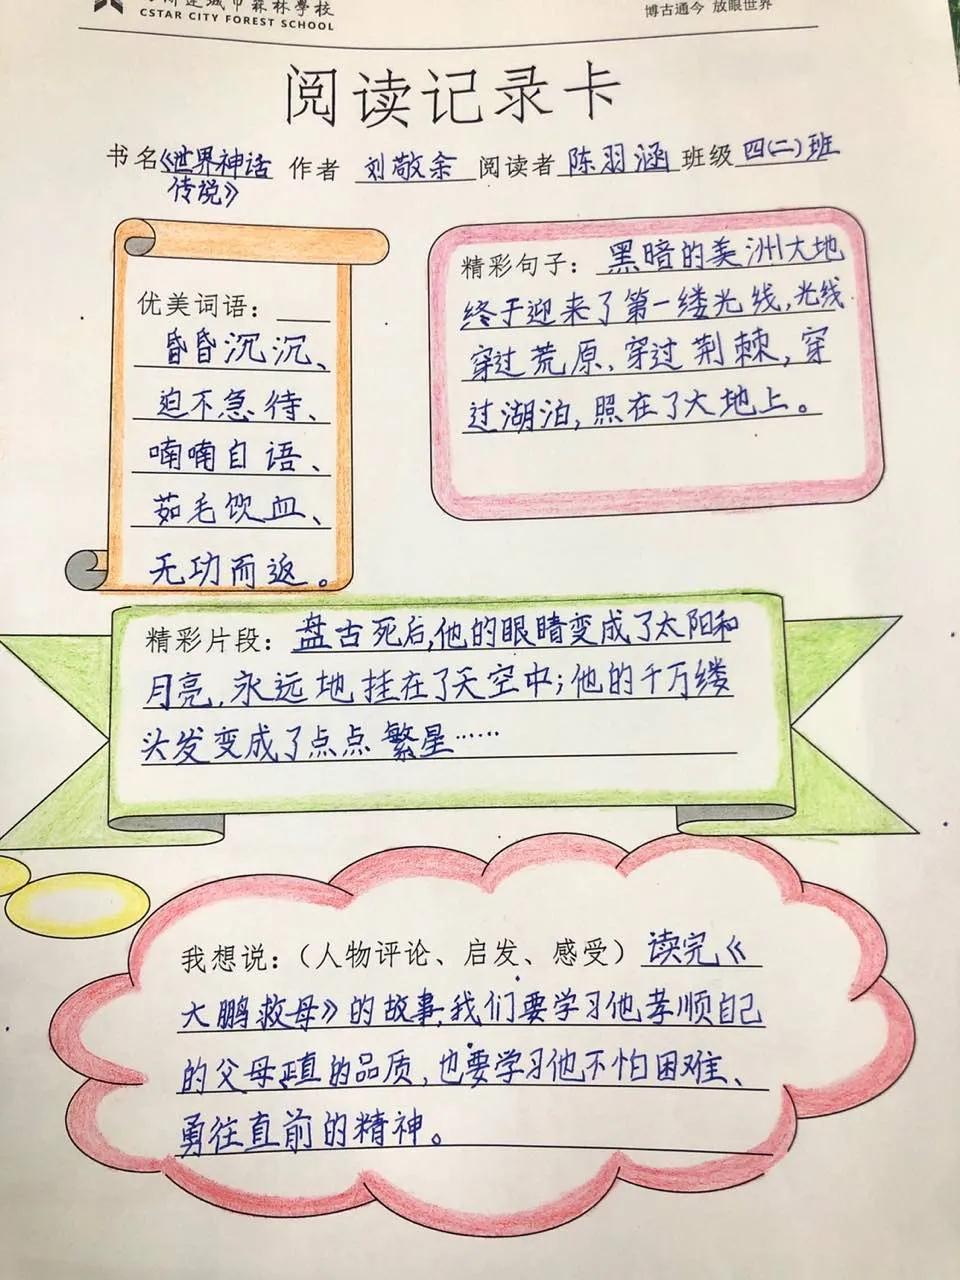 城市森林學校
CSTAR CITY FOREST SCHOOL
博古通今 放眼世界
阅读记录卡
书名《世界神话传说》 作者 刘敬余 阅读者 陈羽涵 班级 四(二)班
优美词语：
昏昏沉沉、
迫不急待、
喃喃自语、
茹毛饮血、
无功而返。
精彩句子：黑暗的美洲大地
终于迎来了第一缕光线，光线
穿过荒原、穿过荆棘，穿
过湖泊，照在了大地上。
精彩片段：盘古死后，他的眼睛变成了太阳和
月亮，永远地挂在了天空中；他的千万缕
头发变成了点点繁星……
我想说：（人物评论、启发、感受）读完《
大鹏救母》的故事，我们要学习他孝顺自己
的父母正直的品质，也要学习他不怕困难、
勇往直前的精神。